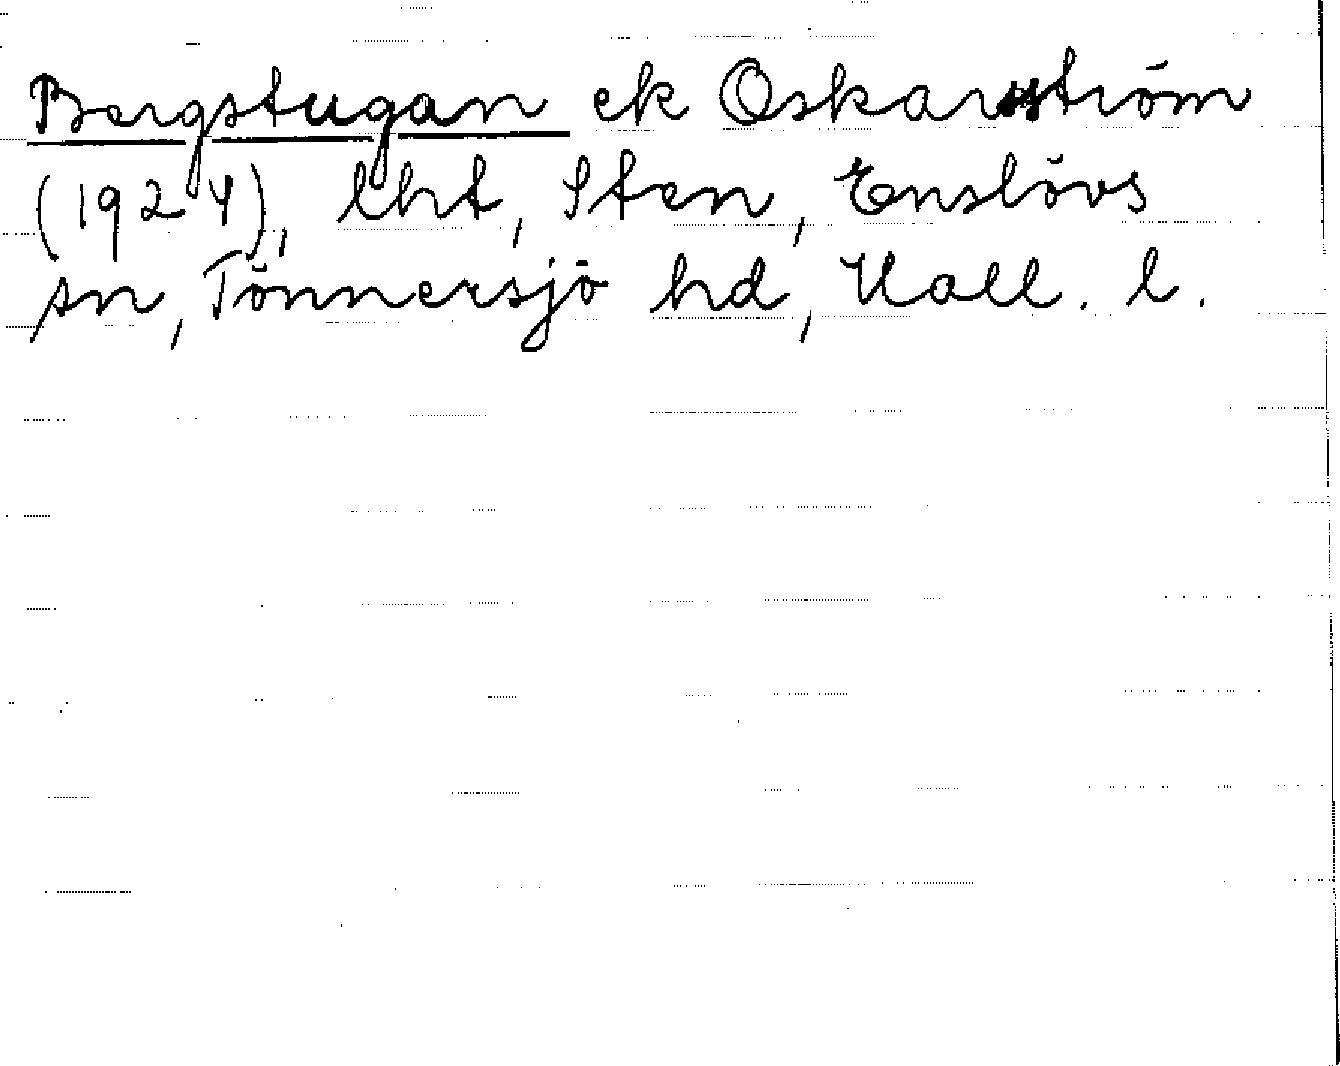 Bergstugan ek Oskarström
(1924), lht, Sten, Enslövs
sn, Tönnersjö hd, Hall. l.